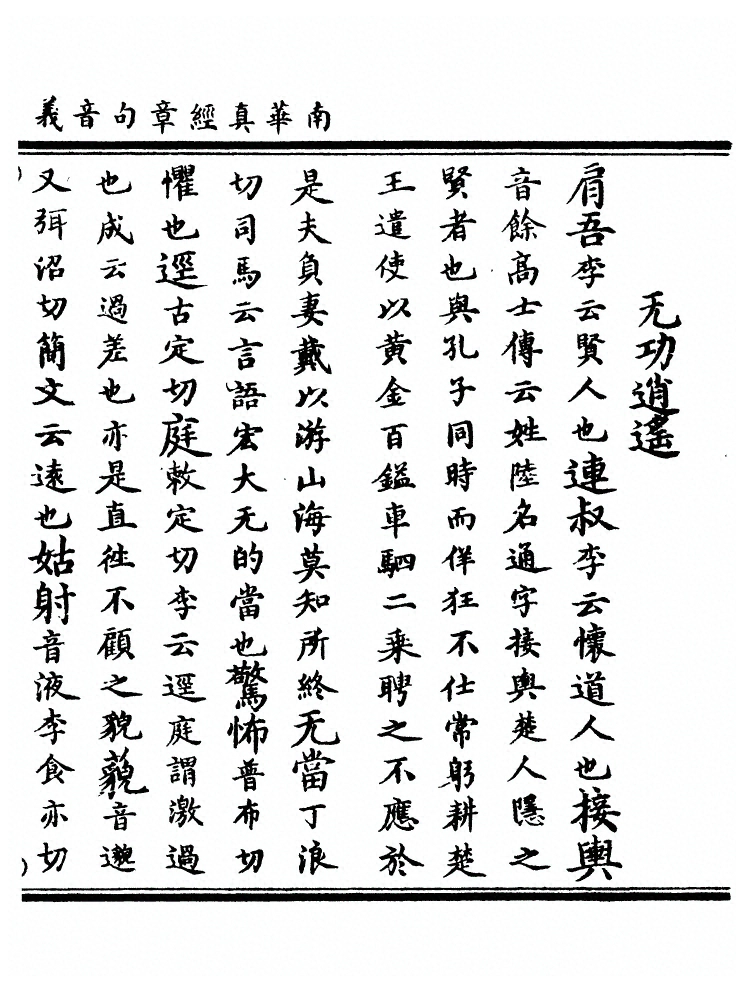 南華真經章句音義
无功逍遙
肩吾李云賢人也連叔李云懷道人也接輿
音餘高士傳云姓陸名通字接輿楚人隱之
賢者也與孔子同時而佯狂不仕常躬耕楚
王遣使以黃金百鎰車駟二乘聘之不應於
是夫負妻戴以游山海莫知所終无當丁浪
切司馬云言語宏大无的當也驚怖普布切
懼也逕古定切庭敕定切李云逕庭謂激過
也成云過差也亦是直往不顧之貌藐音邈
又弭沼切簡文云遠也姑射音液李食亦切